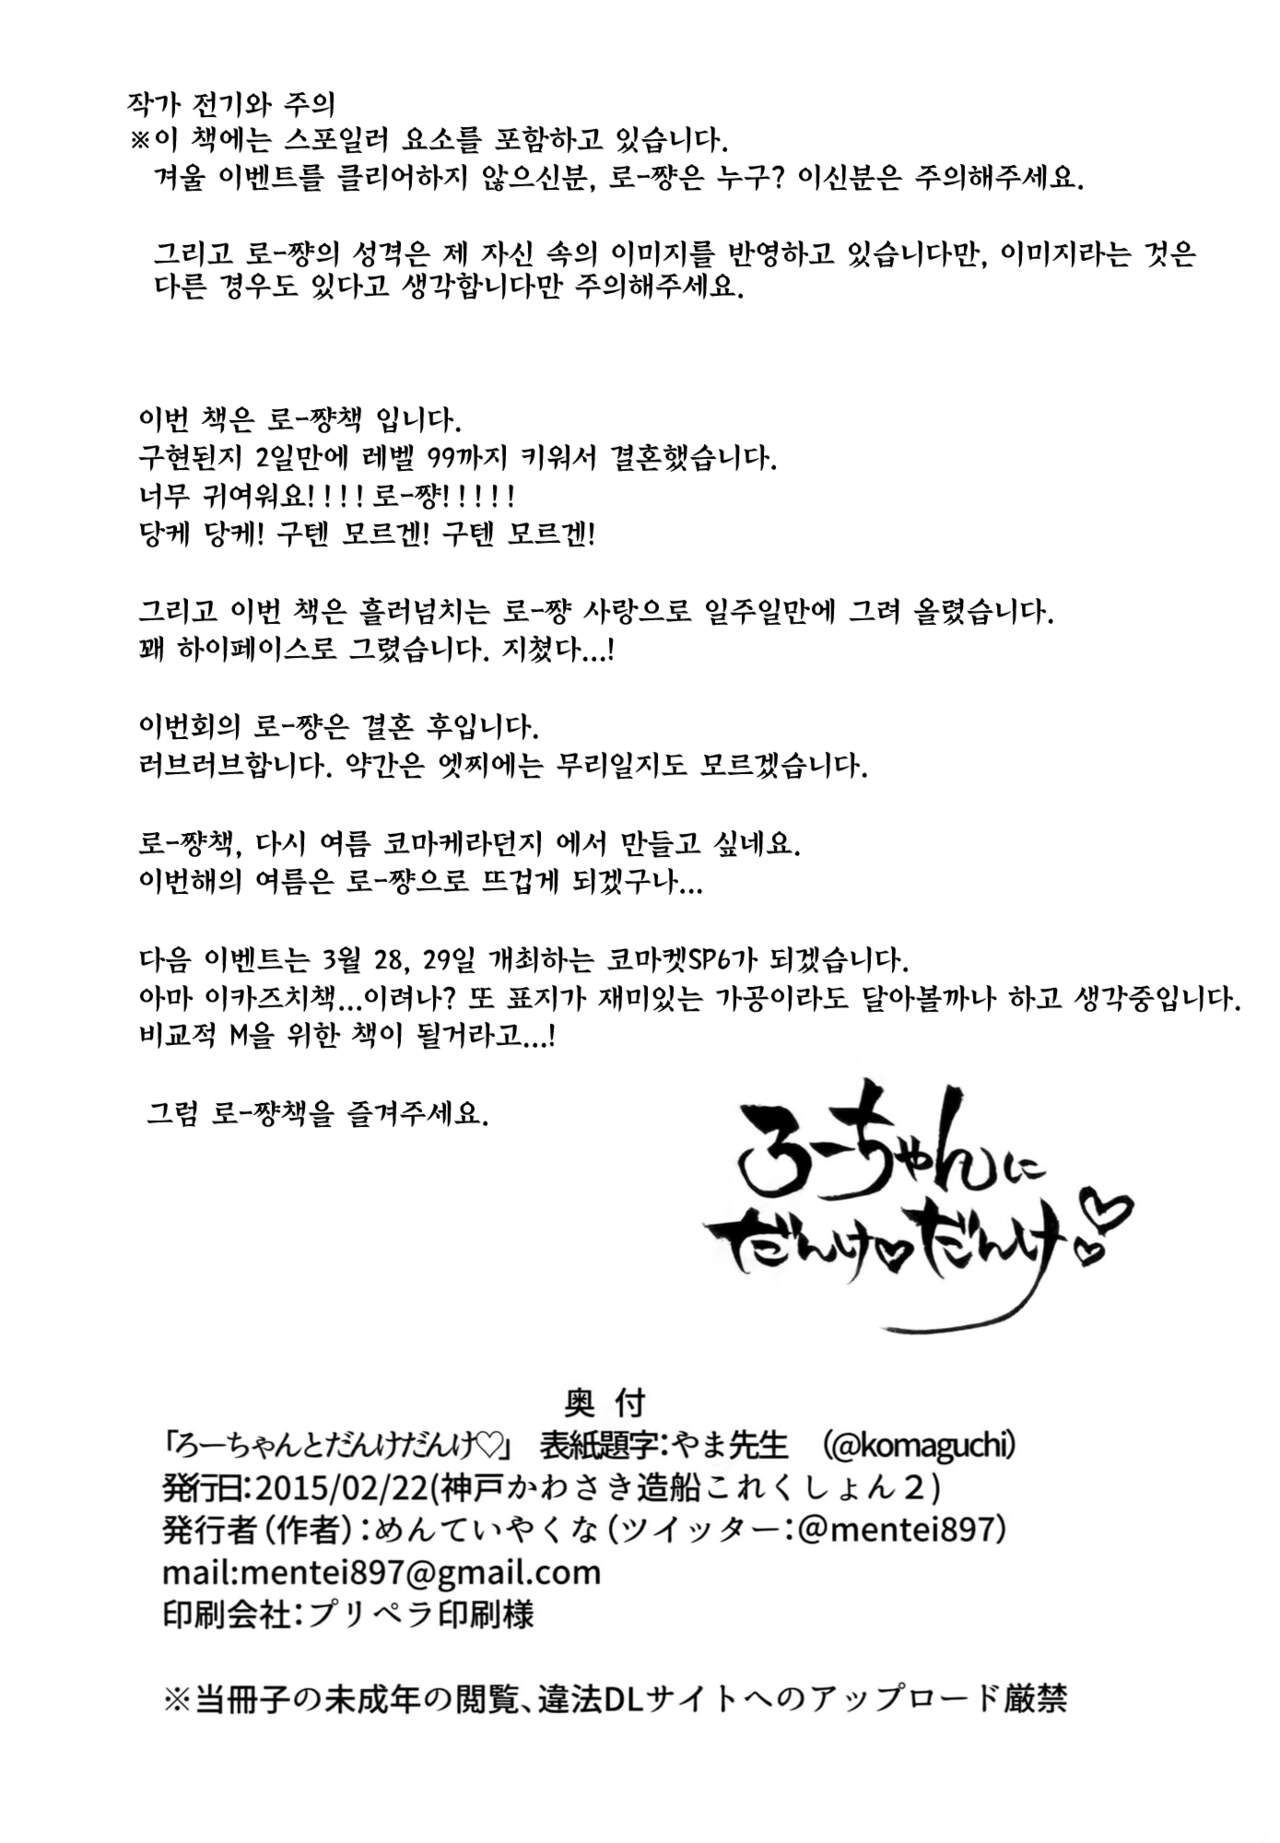 작가 전기와 주의
※이 책에는 스포일러 요소를 포함하고 있습니다.
겨울 이벤트를 클리어하지 않으신분, 로-쨩은 누구? 이신분은 주의해주세요.
그리고 로-쨩의 성격은 제 자신 속의 이미지를 반영하고 있습니다만, 이미지라는 것은
다른 경우도 있다고 생각합니다만 주의해주세요.
이번 책은 로-쨩책 입니다.
구현된지 2일만에 레벨 99까지 키워서 결혼했습니다.
너무 귀여워요!!!!로-쨩!!!!!
당케 당케! 구텐 모르겐! 구텐 모르겐!
그리고 이번 책은 흘러넘치는 로-쨩 사랑으로 일주일만에 그려 올렸습니다.
꽤 하이페이스로 그렸습니다. 지쳤다...!
이번회의 로-쨩은 결혼 후입니다.
러브러브합니다. 약간은 엣찌에는 무리일지도 모르겠습니다.
로-쨩책, 다시 여름 코마케라던지 에서 만들고 싶네요.
이번해의 여름은 로-쨩으로 뜨겁게 되겠구나...
다음 이벤트는 3월 28, 29일 개최하는 코마켓SP6가 되겠습니다.
아마 이카즈치책...이려나? 또 표지가 재미있는 가공이라도 달아볼까나 하고 생각중입니다.
비교적 M을 위한 책이 될거라고...!
그럼 로-쨩책을 즐겨주세요.
ろーちゃんに
だんけ♡だんけ♡♡
奥 付
「ろーちゃんとだんけだんけ♡」 表紙題字：やま先生 （@komaguchi）
発行日：2015/02/22(神戸かわさき造船これくしょん２)
発行者（作者）：めんていやくな（ツイッター：@mentei897）
mail:mentei897@gmail.com
印刷会社：プリペラ印刷様
※当冊子の未成年の閲覧、違法DLサイトへのアップロード厳禁